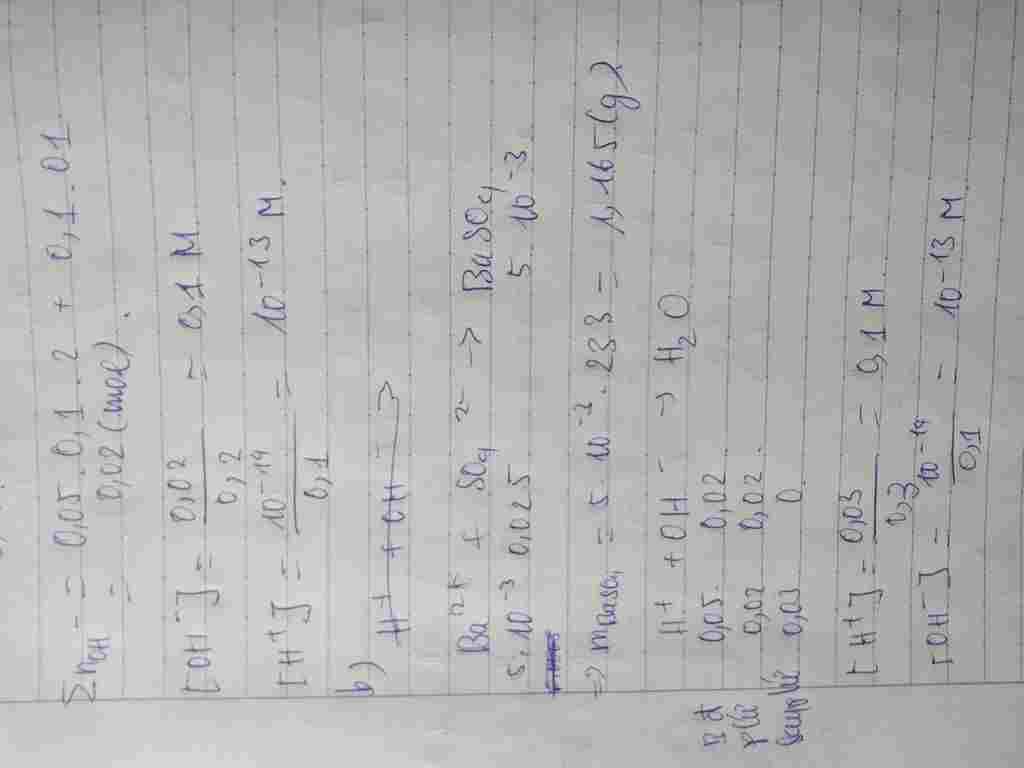 Σn_OH⁻ = 0,05.0,1.2 + 0,1.01
= 0,02 (mol).
[OH⁻] = 0,02/0,2 = 0,1 M.
[H⁺] = 10⁻¹⁴/0,1 = 10⁻¹³ M.
b) H⁺ + OH⁻ →
Ba²⁺ + SO₄²⁻ → BaSO₄
5.10⁻³ 0,025 5.10⁻³
=> m_BaSO₄ = 5.10⁻³.233 = 1,165 (g)
H⁺ + OH⁻ → H₂O
Bđ 0,05. 0,02
pứ 0,02 0,02.
sau pứ 0,03 0.
[H⁺] = 0,03/0,3 = 0,1 M
[OH⁻] = 10⁻¹⁴/0,1 = 10⁻¹³ M.